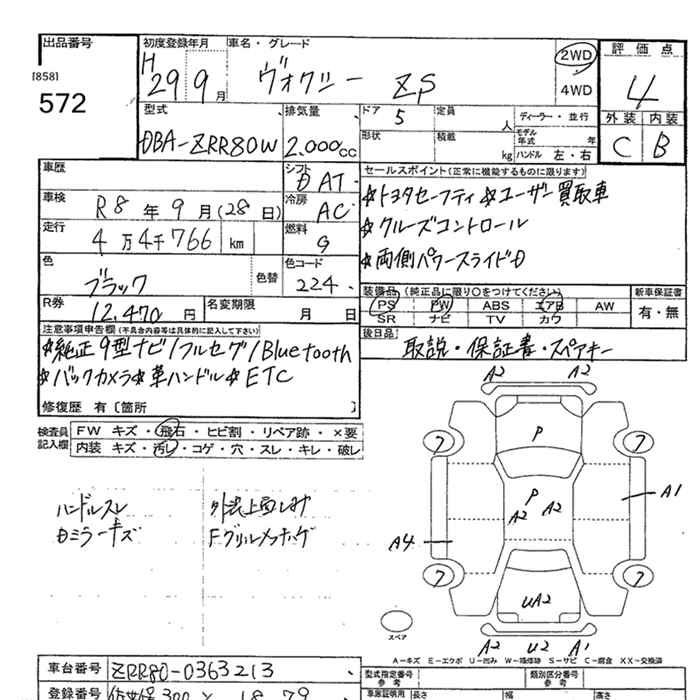 出品番号 初度登録年月 車名・グレード
[858]
572
H 29 9月 ヴォクシー ZS 2WD 4WD
評価点
4
外装 内装
C B
型式 排気量 ドア 5 定員 人 ディーラー・並行
DBA-ZRR80W 2.000cc
形状 積載 kg モデル年式 年
ハンドル 左・右
車歴 シフト DAT
セールスポイント(正常に機能するものに限ります)
☆トヨタセーフティ ☆ユーザー買取車
☆クルーズコントロール
☆両側パワースライドD
車検 R8年9月(28日) 冷房 AC
走行 4万4千766 km 燃料 G
色 ブラック 色替 色コード 224
R券 12,470円 名変期限 月 日
装備品 (純正品に限り○をつけてください) 新車保証書
PS PW ABS エアB AW 有・無
SR ナビ TV カワ
後日品 取説・保証書・スペアキー
注意事項申告欄(不具合内容等は具体的に記入して下さい)
☆純正9型ナビ/フルセグ/Bluetooth
☆バックカメラ☆革ハンドル☆ETC
修復歴 有〔箇所 〕
検査員記入欄
FW キズ・飛石・ヒビ割・リペア跡・×要
内装 キズ・汚レ・コゲ・穴・スレ・キレ・破レ
ハンドルスレ 外装上面しみ
Dミラーキズ Fグリルメッキハゲ
A2 A2
P
7 7
P
A2 A2
A1
A4
7 7
UA2
スペア
A2 U2 A1
A-キズ E-エクボ U-凹み W-補修跡 S-サビ C-腐食 XX-交換済
車台番号 ZRR80-0363213
型式指定番号 参考 類別区分番号 参考
登録番号 300 18-79
車庫証明用 参考 長さ 幅 高さ